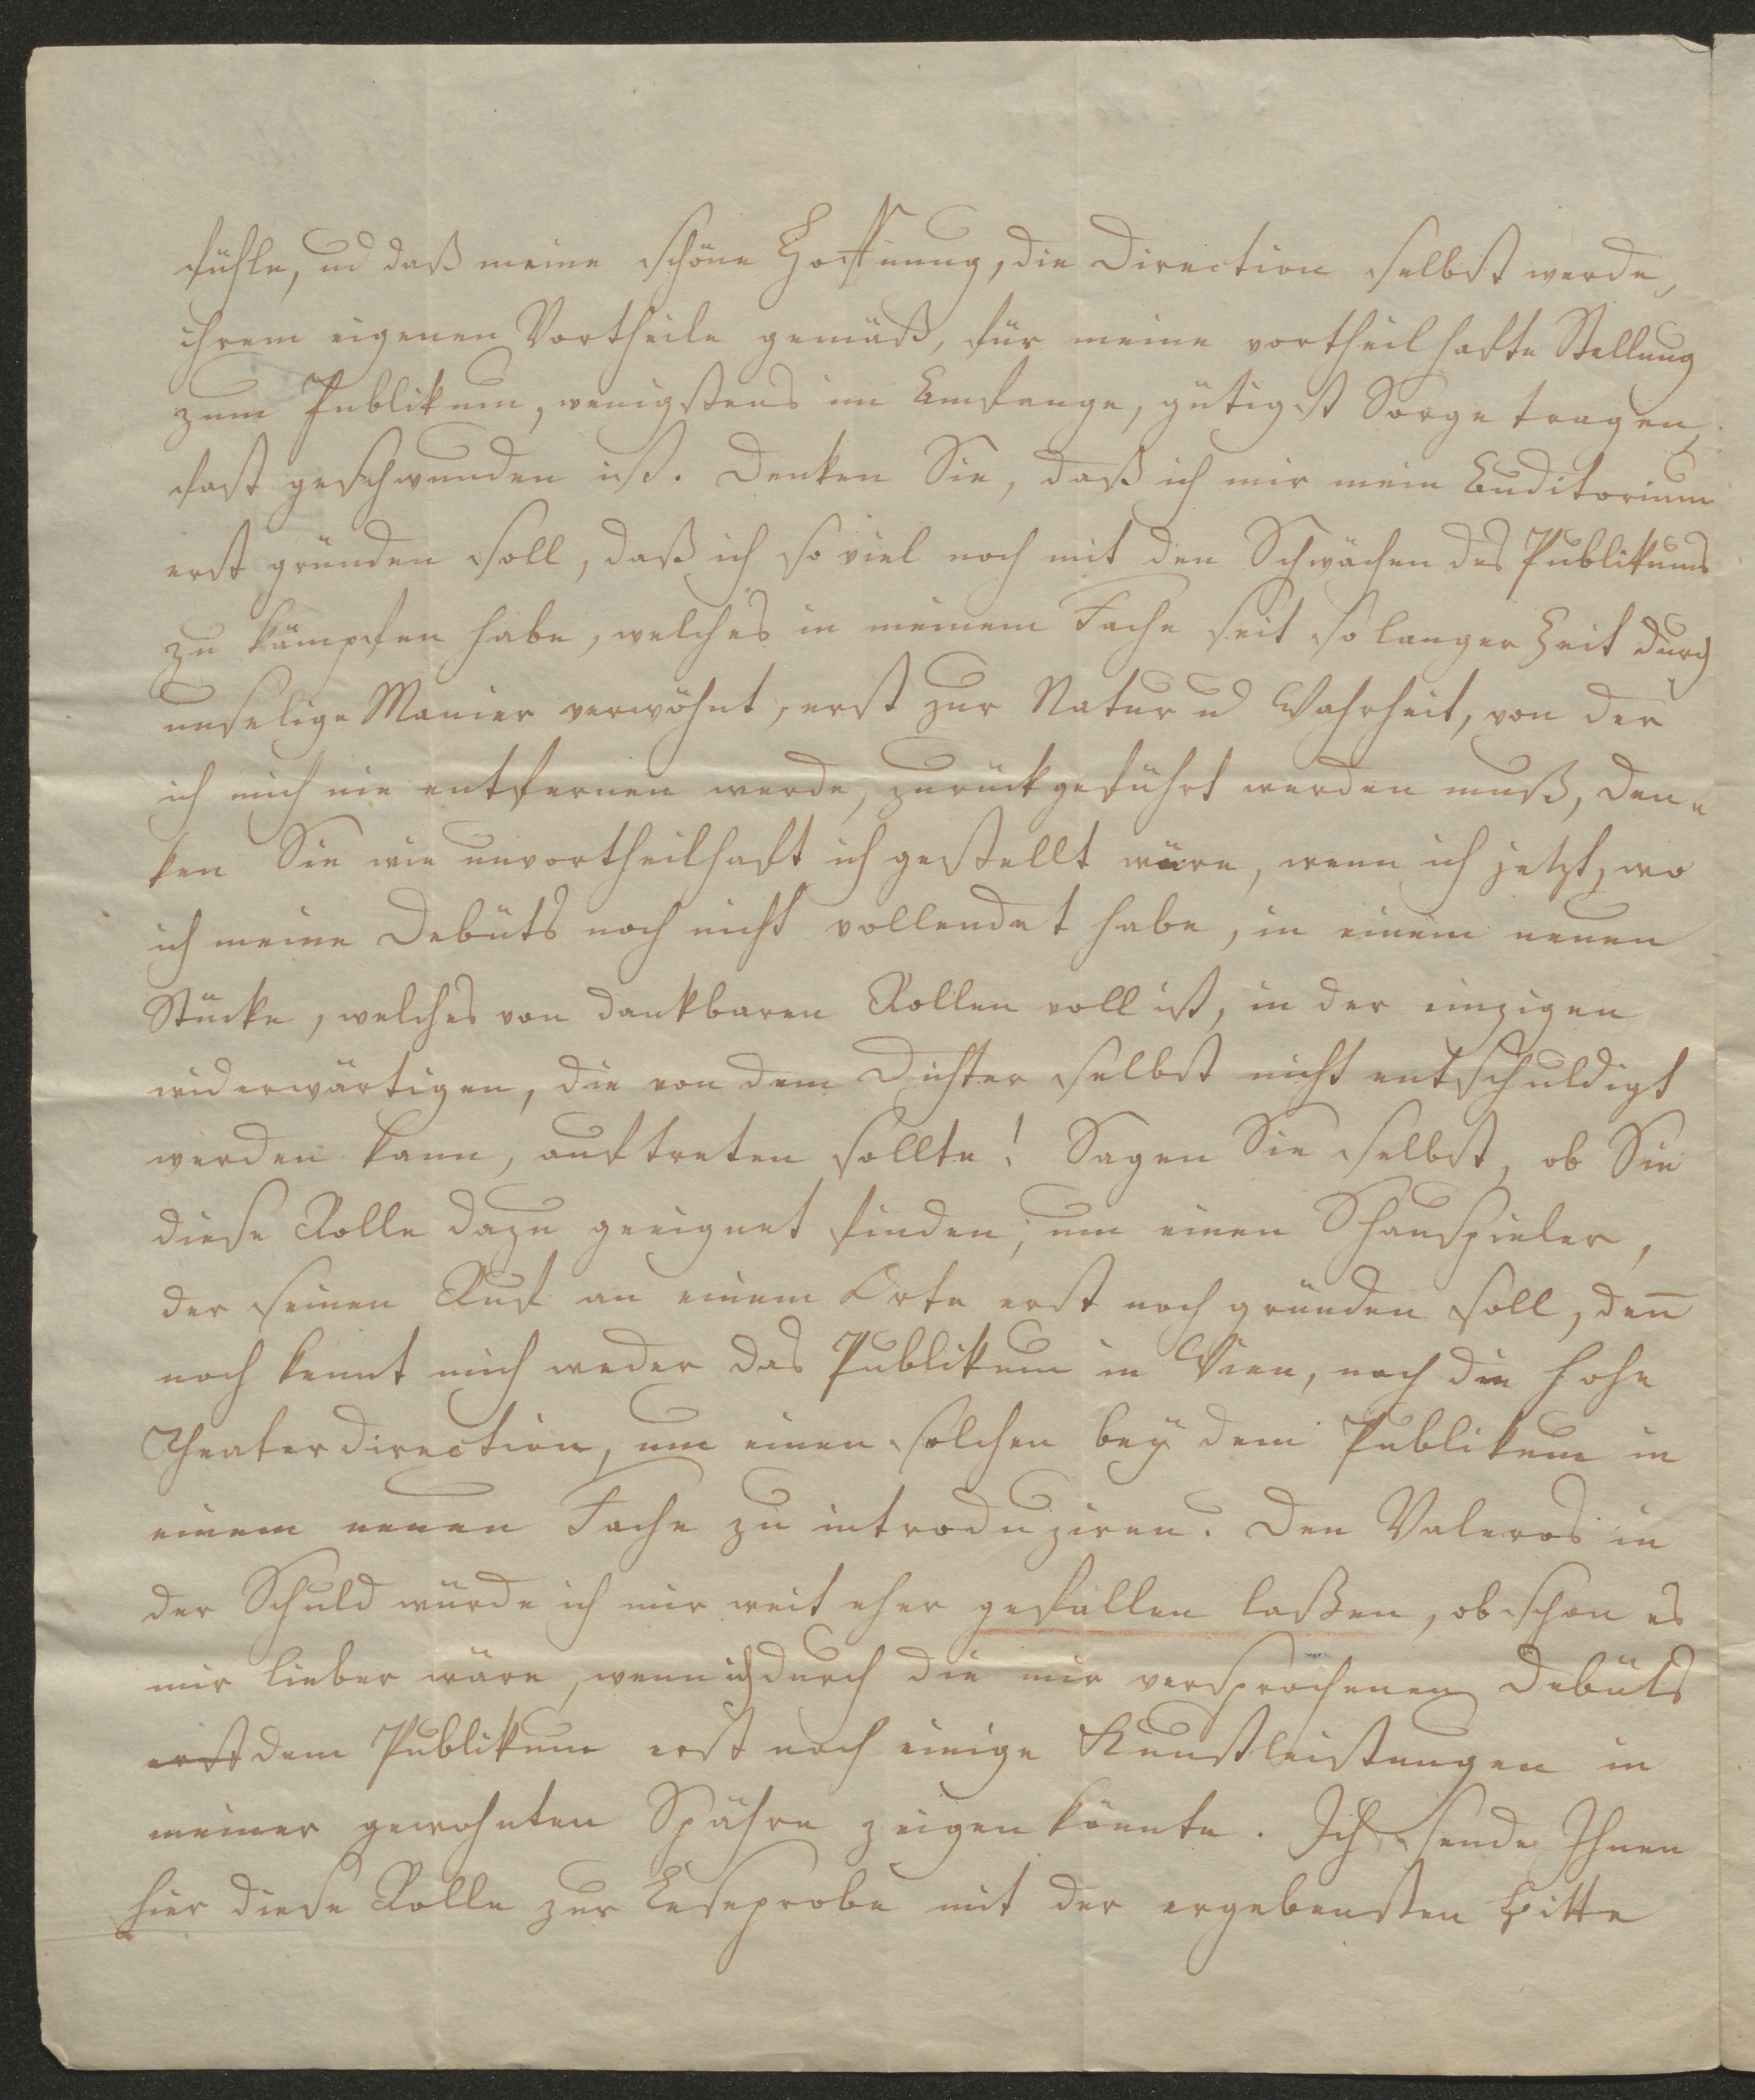 fühle, und daß meine schöne Hoffnung, die Direction selbst werde,
ihrem eigenen Vortheile gemäß, für meine vortheilhafte Stellung
zum Publikum, wenigstens im Anfange, gütigst Sorge tragen,
fast geschwunden ist. Denken Sie, daß ich mir mein Auditorium
erst gründen soll, daß ich so viel noch mit den Schwächen des Publikums
zu kämpfen habe, welches in meinem Fache seit so langer Zeit durch
unselige Manier verwöhnt, erst zur Natur u Wahrheit, von der
ich mich nie entfernen werde, zurückgeführt werden muß, den=
ken Sie wie unvortheilhaft ich gestellt wäre, wenn ich jetzt, wo
ich meine Debüts noch nicht vollendet habe, in einem neuen
Stücke, welches von dankbaren Rollen voll ist, in der einzigen
widerwärtigen, die von dem Dichter selbst nicht entschuldigt
werden kann, auftreten sollte! Sagen Sie selbst, ob Sie
diese Rolle dazu geeignet finden, um einen Schauspieler,
der seinen Ruf an einem Orte erst noch gründen soll, deñ
noch kennt mich weder das Publikum in Wien, noch die hohe
Theaterdirection, um einen solchen bey dem Publikum in
einem neuen Fache zu introduziren. Den Valeros in
der Schuld würde ich mir weit eher gefallen laßen, obschon es
mir lieber wäre, wenn ich durch die mir versprochenen Debüts
erst dem Publikum erst noch einige Kunstleistungen in
meiner gewohnten Sphäre zeigen könnte. Ich sende Ihnen
hier diese Rolle zur Leseprobe mit der ergebensten Bitte